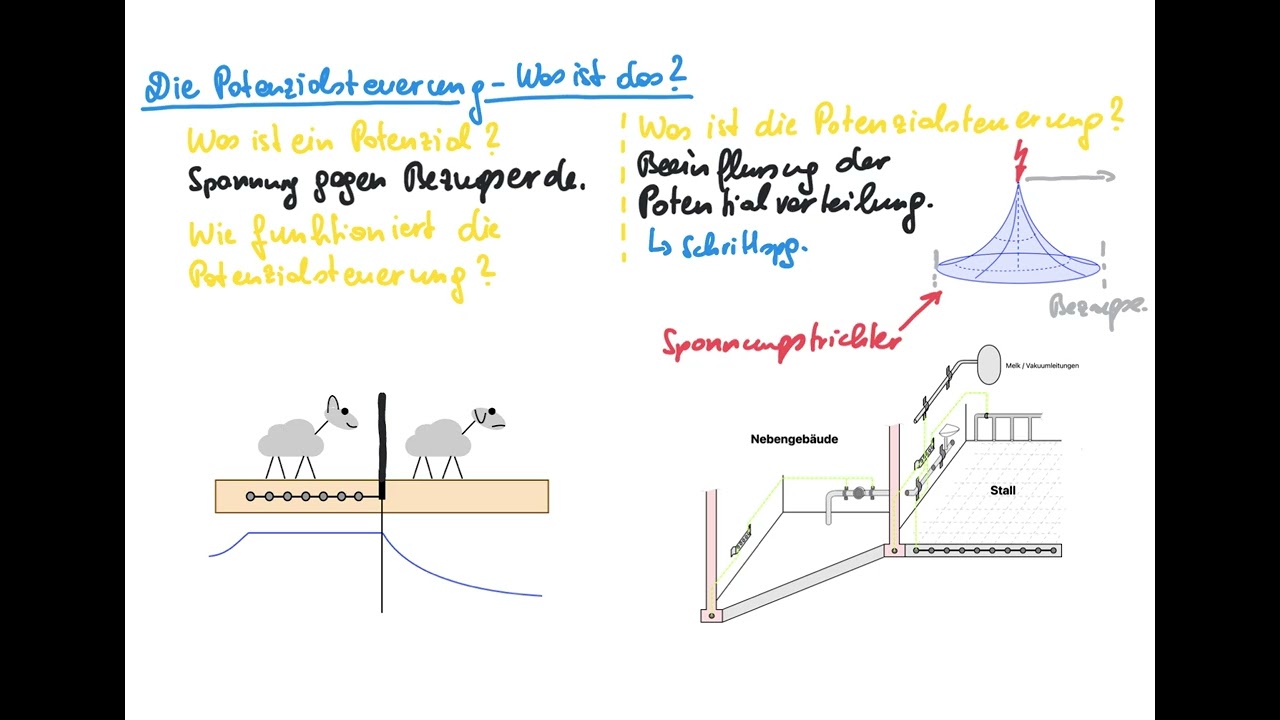 Die Potenzialsteuerung - Was ist das?
Was ist ein Potenzial?
Spannung gegen Bezugserde.
Wie funktioniert die
Potenzialsteuerung?
Was ist die Potenzialsteuerung?
Beeinflussung der
Potentialverteilung.
↳ Schrittspg.
Bezugse.
Spannungstrichter
Melk / Vakuumleitungen
Nebengebäude
Stall